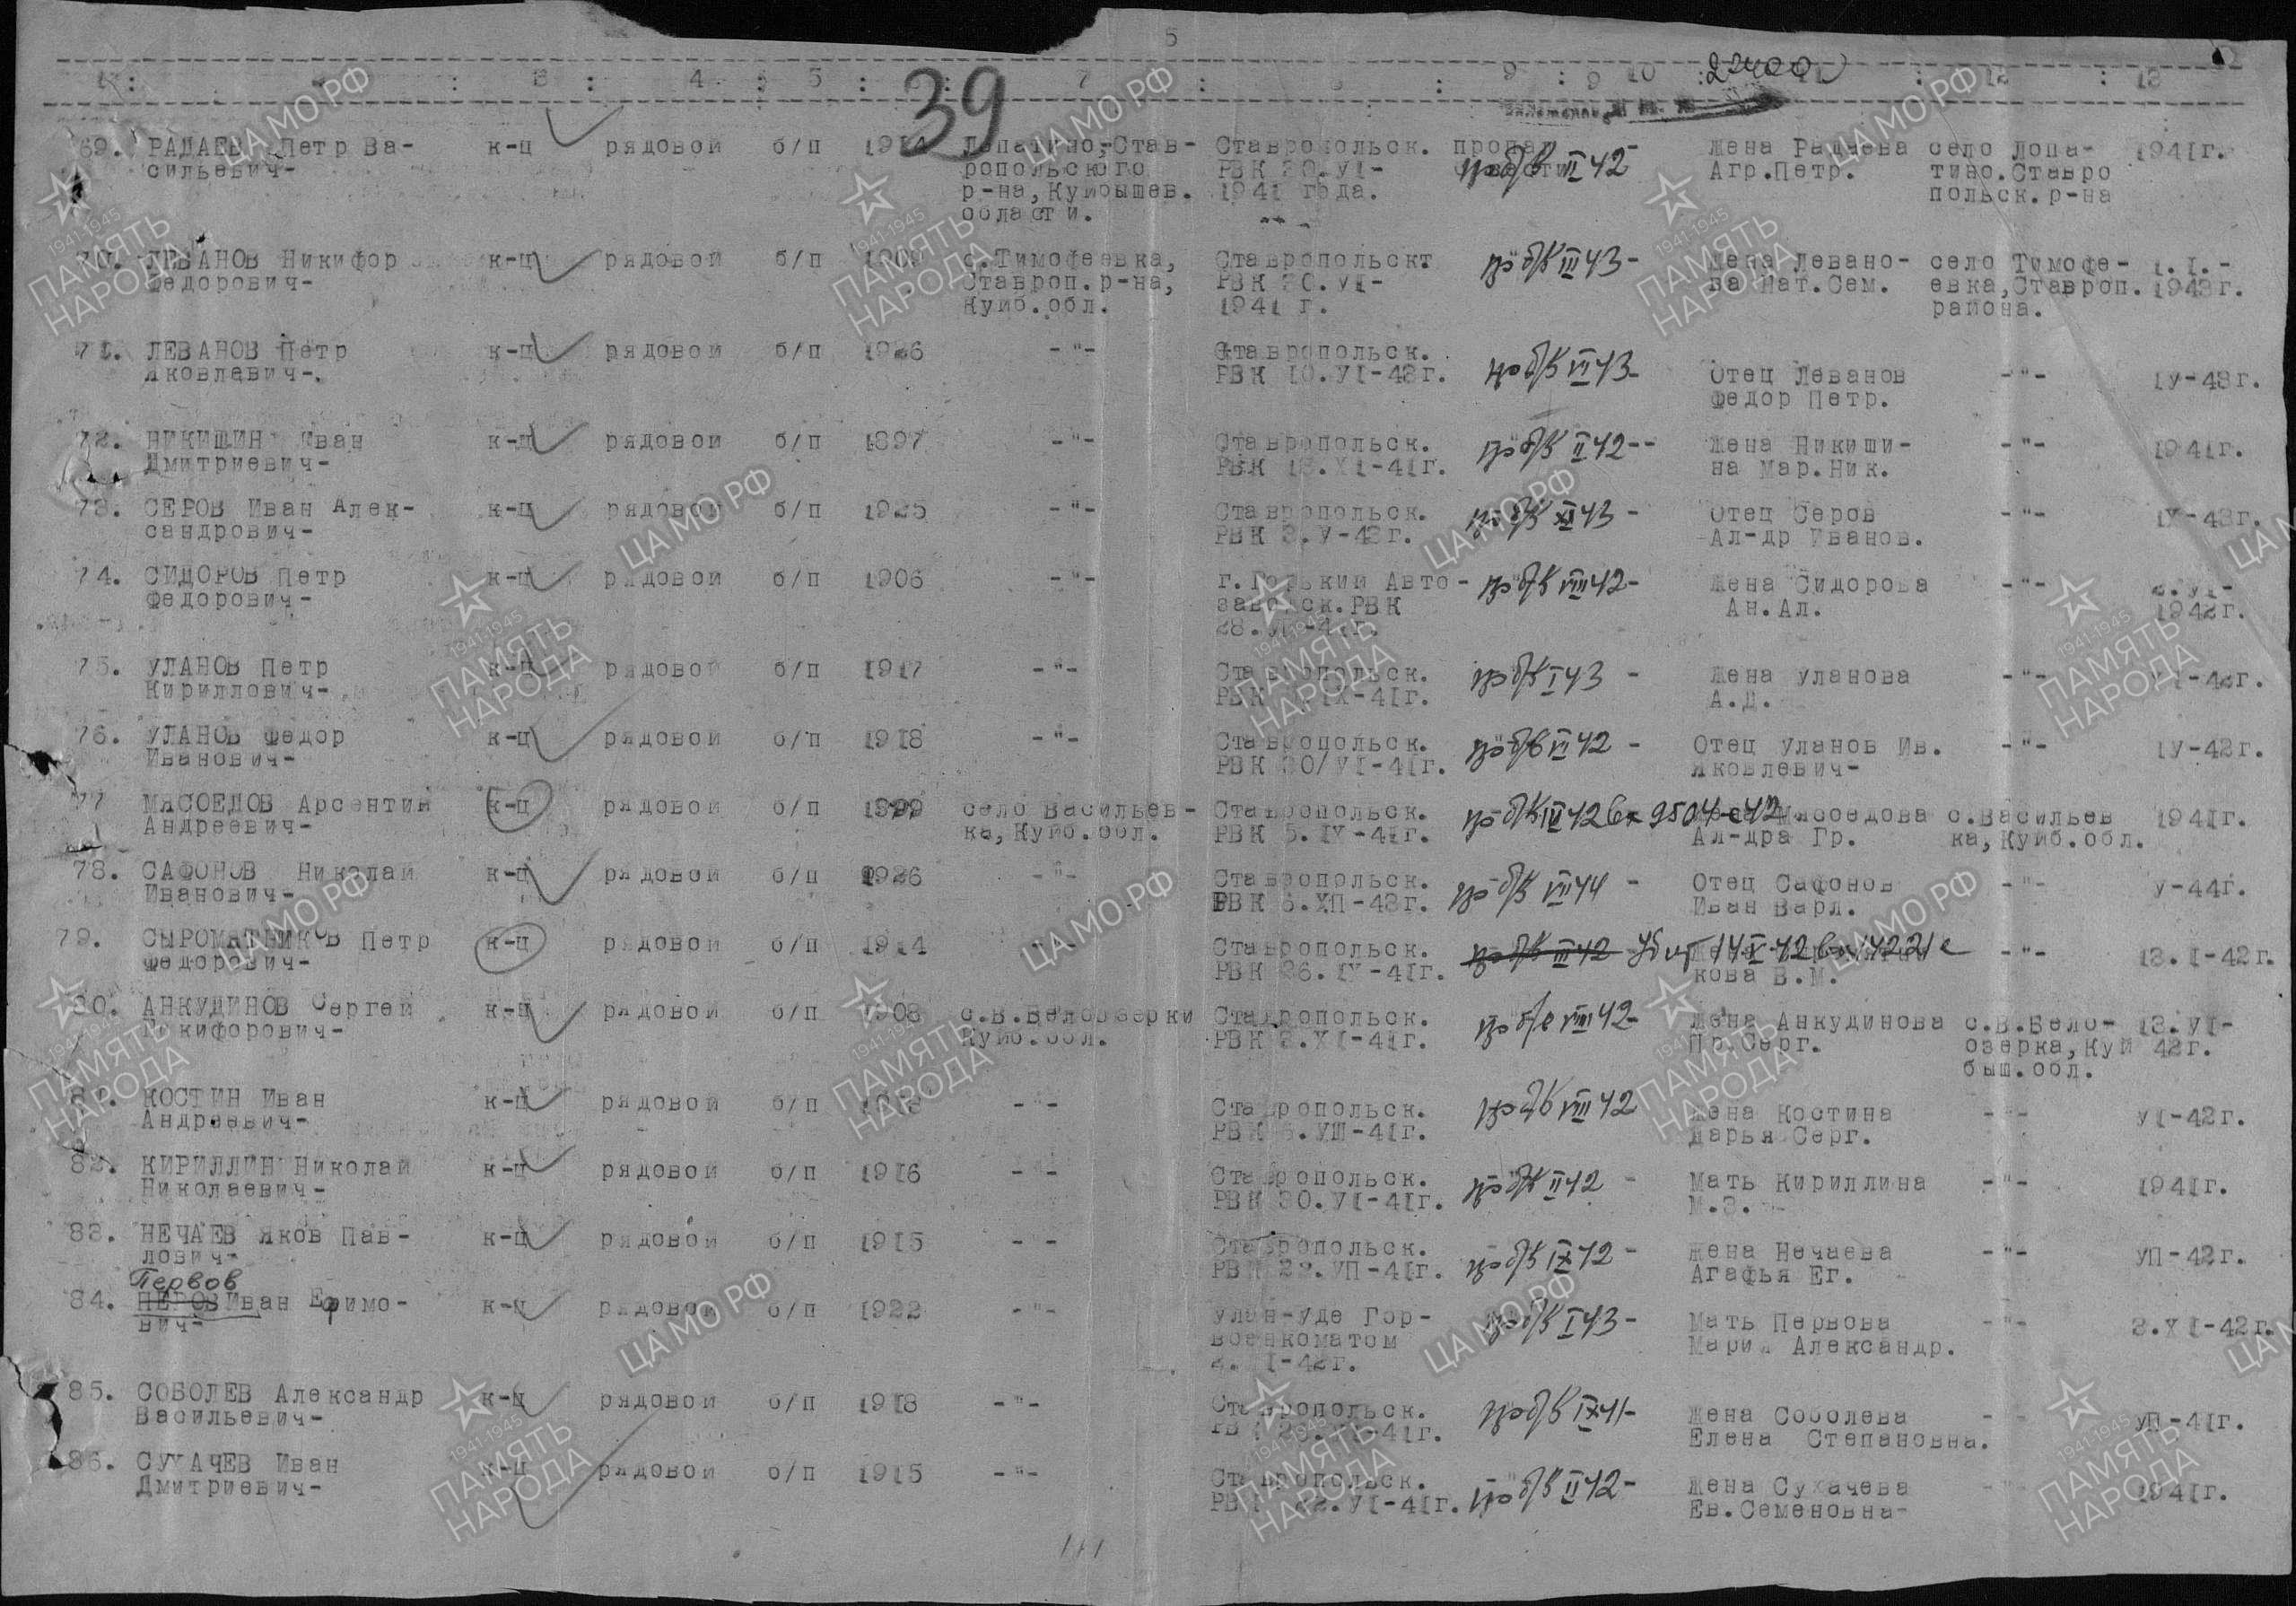 5
39
22400
69. РАДАЕВ Петр Ва- к-ц рядовой б/п 1914 Лопатино, Став- Ставропольск. пропал Жена Радаева село Лопа- 1941г.
сильевич- ропольского РВК 30.УI- пр б/в II 42 Агр.Петр. тино.Ставро
р-на, Куйбышев. 1941 года. польск.р-на
области.
70. ЛЕВАНОВ Никифор к-ц рядовой б/п 1909 с.Тимофеевка, Ставропольск. пр б/в III 43- Жена Левано- село Тимофе- I.I.-
Федорович- Ставроп.р-на, РВК 30.УI- ва Нат.Сем. евка,Ставроп. 1943г.
Куйб.обл. 1941 г. района.
71. ЛЕВАНОВ Петр к-ц рядовой б/п 1926 -"- Ставропольск.
Яковлевич- РВК 10.УI-43г. пр б/в VI 43- Отец Леванов -"- IУ-43г.
Федор Петр.
72. НИКИШИН Иван к-ц рядовой б/п 1897 -"- Ставропольск. пр б/в II 42-- Жена Никиши- -"- 1941г.
Дмитриевич- РВК 18.XI-41г. на Мар.Ник.
73. СЕРОВ Иван Алек- к-ц рядовой б/п 1925 -"- Ставропольск. пр б/в XI 43 - Отец Серов -"- IX-43г.
сандрович- РВК 3.У-43г. Ал-др Иванов.
74. СИДОРОВ Петр к-ц рядовой б/п 1906 -"- г.Горький Авто- пр б/в VIII 42- Жена Сидорова -"-
Федорович- заводск.РВК Ан.Ал. 1942г.
75. УЛАНОВ Петр к-ц рядовой б/п 1917 -"- Ставропольск. пр б/в I 43 - Жена Уланова -"-
Кириллович- РВК IX-41г. А.Д.
76. УЛАНОВ Федор к-ц рядовой б/п 1918 -"- Ставропольск. пр б/в VI 42 - Отец Уланов Ив. -"- IУ-42г.
Иванович- РВК 30/УI-41г. Яковлевич-
77 МЯСОЕДОВ Арсентий к-ц рядовой б/п 1899 село Васильев- Ставропольск. пр б/в IV 42 вх 9504-47 Мясоедова с.Васильев 1941г.
Андреевич- ка,Куйб.обл. РВК 5.IУ-41г. Ал-дра Гр. ка,Куйб.обл.
78. САФОНОВ Николай к-ц рядовой б/п 1926 -"- Ставропольск. пр б/в VII 44 - Отец Сафонов -"- У-44г.
Иванович- РВК 6.ХП-43г. Иван Варл.
79. СЫРОМЯТНИКОВ Петр к-ц рядовой б/п 1914 -"- Ставропольск. пр б/в III 42 Убит 14 X 42 вх 14221с -"- 13.I-42г.
Федорович- РВК 26.IУ-41г. кова В.М.
80. АНКУДИНОВ Сергей к-ц рядовой б/п 1908 с.В.Белозерки Ставропольск. пр б/в VIII 42- Жена Анкудинова с.В.Бело- 13.УI-
Никифорович- Куйб.обл. РВК 3.XI-41г. Пр.Серг. озерка,Куй 42г.
быш.обл.
81. КОСТИН Иван к-ц рядовой б/п -"- Ставропольск. пр б/в VIII 42 Жена Костина -"- УI-42г.
Андреевич- РВК 5.УШ-41г. Дарья Серг.
82. КИРИЛЛИН Николай к-ц рядовой б/п 1916 -"- Ставропольск. пр б/в II 42 - Мать Кириллина -"- 1941г.
Николаевич- РВК 30.УI-41г. М.З.
83. НЕЧАЕВ Яков Пав- к-ц рядовой б/п 1915 -"- Ставропольск. пр б/в IX 42 - Жена Нечаева -"- УП-42г.
лович- РВК 22.УП-41г. Агафья Ег.
Первов
84. ПЕРОВ Иван Ефимо- к-ц рядовой б/п 1922 -"- Улан-Уде Гор- пр б/в I 43- Мать Первова -"- 3.XI-42г.
вич- военкоматом Мария Александр.
85. СОБОЛЕВ Александр к-ц рядовой б/п 1918 -"- Ставропольск. пр б/в IX 41- Жена Соболева УП-41г.
Васильевич- Елена Степановна.
86. СУХАЧЕВ Иван к-ц рядовой б/п 1915 -"- Ставропольск. пр б/в II 42- Жена Сухачева 1941г.
Дмитриевич- РВК 22.УI-41г. Ев.Семеновна-
ЦА МО РФ
1941-1945
ПАМЯТЬ
НАРОДА